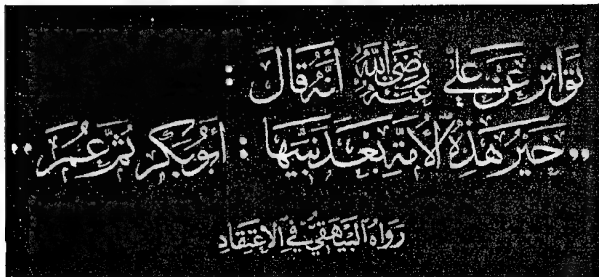 تَوَاتَر عَنْ عَلِي رَضِيَ اللّٰهُ عَنْهُ أَنَّهُ قَالَ :
,, خَيْرُ هَذِهِ الأُمَّةِ بَعْدَ نَبِيِّهَا : أَبُو بَكْرٍ ثُمَّ عُمَرَ ,,
رَوَاهُ البَيْهَقِيُّ فِي الاِعْتِقَادِ